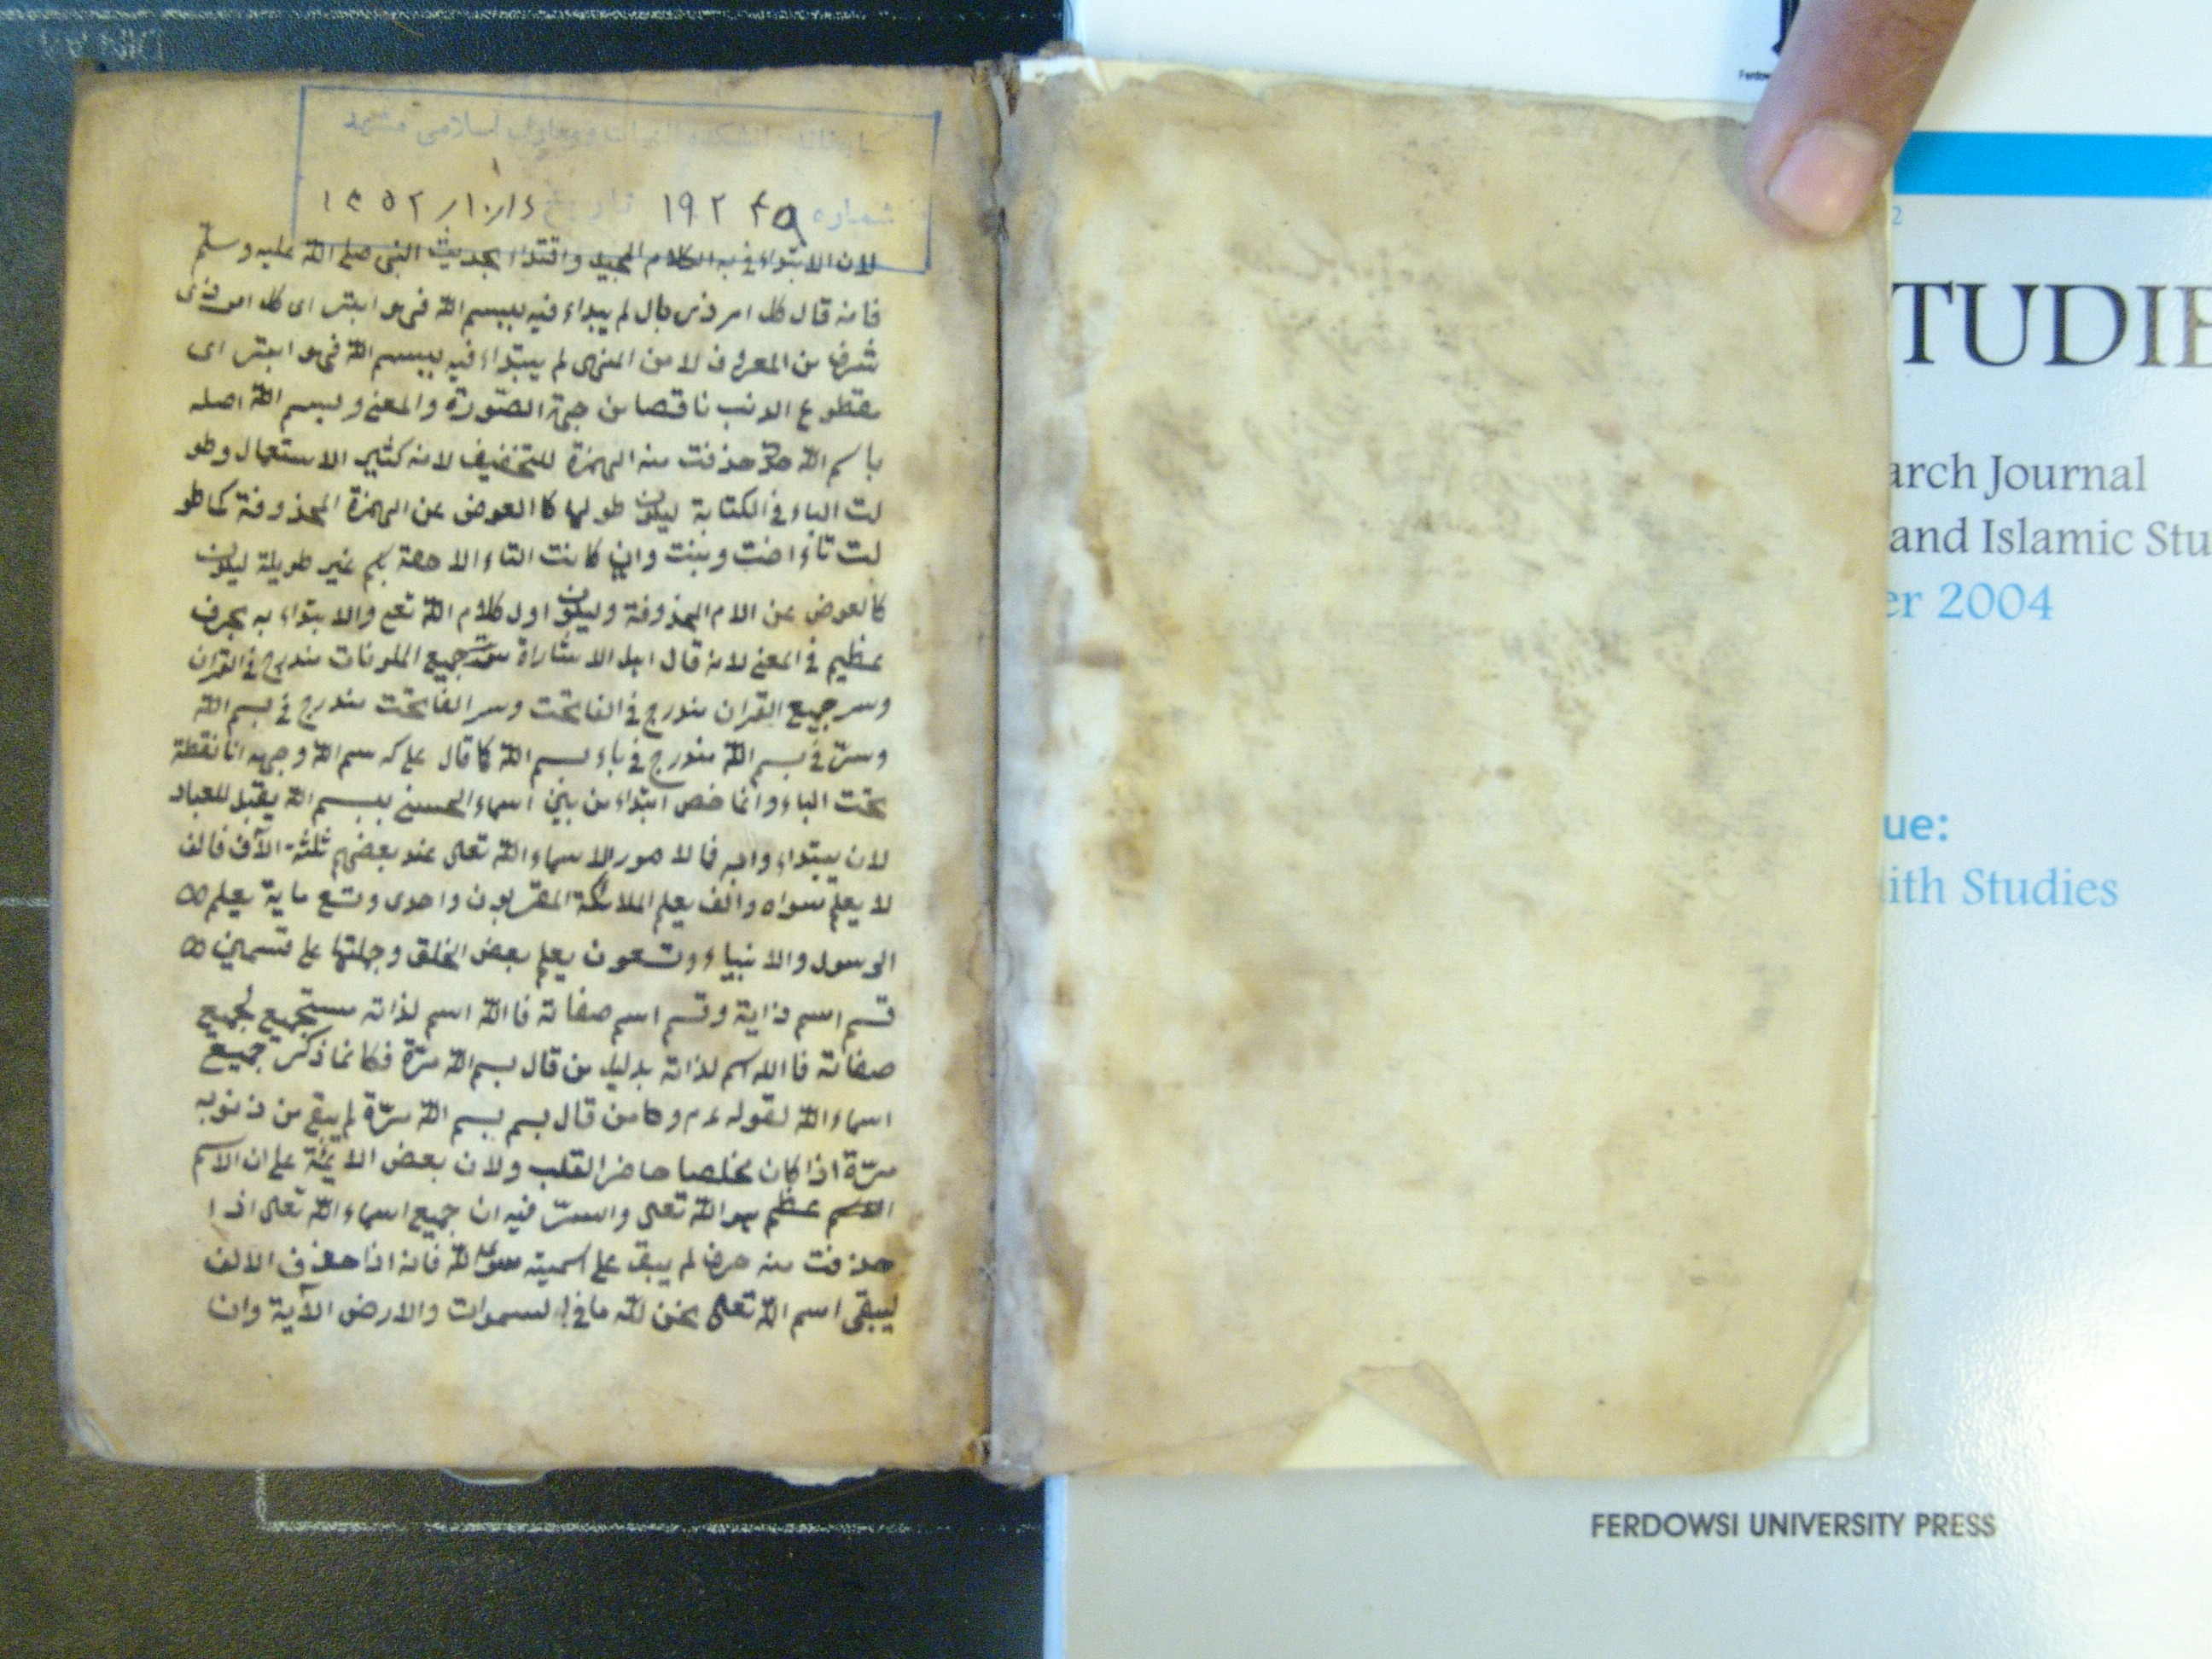 کتابخانه دانشکده الهیات و معارف اسلامی مشهد
شماره ۱۹۲۴۵ تاریخ
لان الابتداء فى به الكلام المجيد واقتداا بحديث النبى صلى الله عليه وسلم
فانه قال كل امر ذى بال لم يبداء فيه ببسم الله فهو ابتر اى كل امر ذى
شرف من المعروف لا من المنهى لم يبتداء فيه ببسم الله فهو ابتر اى
مقطوع الذنب ناقصا من جهة الصورة والمعنى وبسم الله اصله
باسم الله حذفت منه الهمزة للتخفيف لانه كثير الاستعمال وطو
لت الباء فى الكتابة ليكون طولها كالعوض عن الهمزة المحذوفة كما طو
لت تاء اخت وبنت وان كانت التاء غير طويلة ليكون
كالعوض عن الام المحذوفة وليكون اول كلام الله تع والابتداء به بحرف
عظيم فى المعنى لانه قال اهل الاشاراة جميع المدونات مندرج فى القران
وسر جميع القران مندرج فى الفاتحت وسر الفاتحت مندرج فى بسم الله
وسر فى بسم الله مندرج فى باء بسم الله كما قال على كرم الله وجهه انا نقطة
تحت الباء وانما خص ابتداء من بين اسماء الحسنى ببسم الله للعباد
لان يبتداء الامور الاسماء الله تعلى عند بعضهم ثلثة الآف فالف
لا يعلم سواه والف يعلم الملائكة المقربون واحدى وتسع ماية يعلم
الرسول والانبياء وتسعون يعلم بعض الخلق وجملتها على قسمين
قسم اسم ذاية وقسم اسم صفاته فاالله اسم لذاته مستجميع لجميع
صفاته فاالله اسم لذاته بدليل من قال بسم الله مرة فكانما ذكر جميع
اسماء الله لقوله عم من قال بسم بسم الله مرة لم يبقى من ذنوبه
مرة اذا كان مخلصا حاضر القلب ولان بعض الايمة على ان الاسم
عظم هو الله تعلى والسر فيه ان جميع اسماء الله تعلى اذا
حذفت منه حرفا لم يبق على اسميته سوى الله فانه اذا حذف الالف
ليبقى اسم الله تعلى نحن لله ما فى السموات والارض الآية وان
TUDIE
arch Journal
and Islamic Stu
er 2004
ue:
ith Studies
FERDOWSI UNIVERSITY PRESS